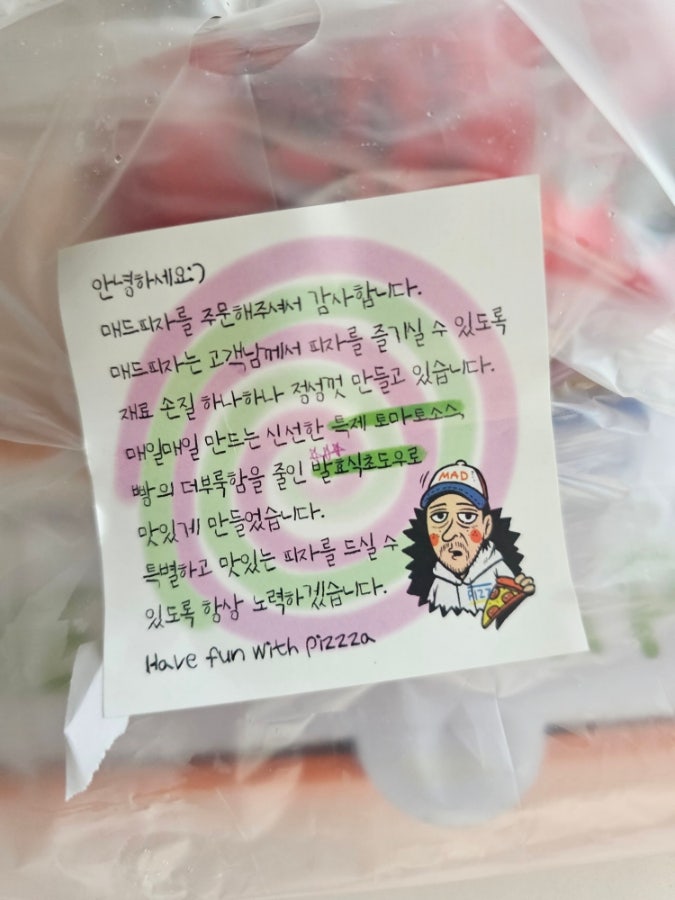 안녕하세요:)
매드피자를 주문해주셔서 감사합니다.
매드피자는 고객님께서 피자를 즐기실 수 있도록
재료 손질 하나하나 정성껏 만들고 있습니다.
매일매일 만드는 신선한 특제 토마토소스,
빵의 더부룩함을 줄인 발효식초도우로
맛있게 만들었습니다.
특별하고 맛있는 피자를 드실 수
있도록 항상 노력하겠습니다.
Have fun with pizzza
MAD
PIZZ